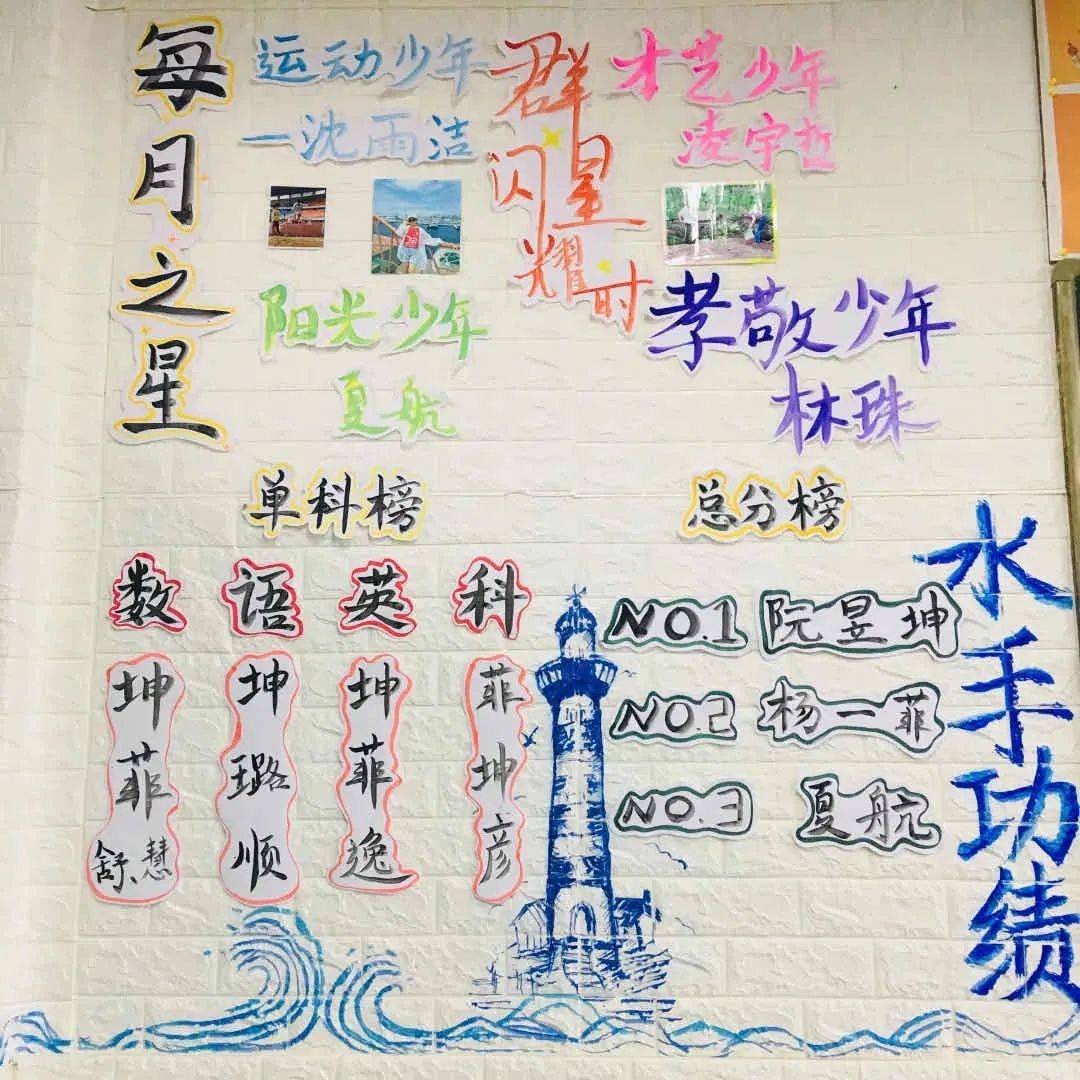 每月之星
运动少年
一沈雨洁
群星
闪耀时
才艺少年
凌宇哲
阳光少年
夏航
孝敬少年
林珠
单科榜
数 语 英 科
坤 坤 坤 菲
菲 璐 菲 坤
舒、慧 顺 逸 彦
总分榜
NO.1 阮昱坤
NO.2 杨一菲
NO.3 夏航
水手功绩